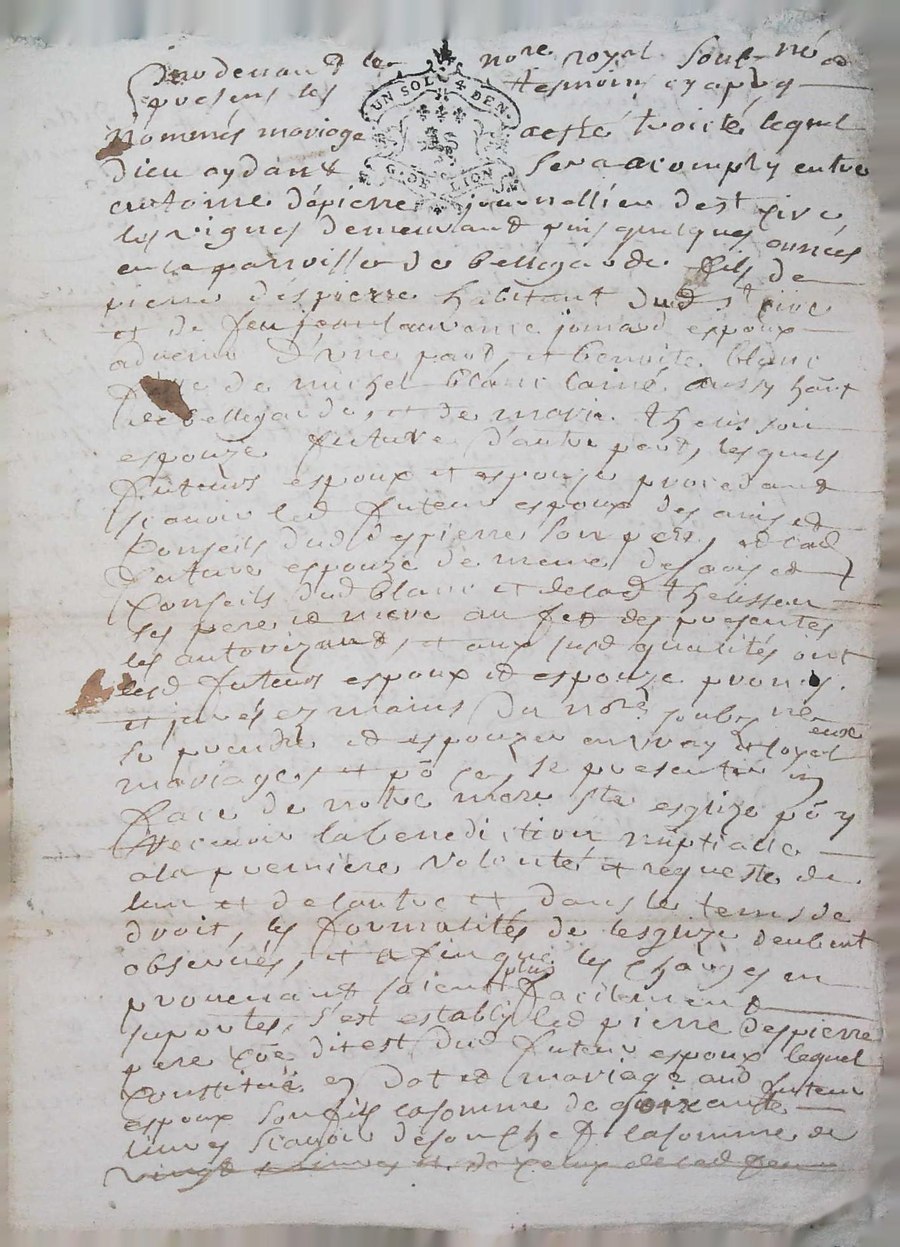 Pardevant le nore royal soubsné
presens les tesmoins cy apres
UN SOL 4 DEN.
G. DE LION
nommés mariage a esté traicté lequel
dieu aydant sera acomply entre
antoine despierre journallier de st cire
les vignes demeurant puis quelques années
en la parroisse de bellegarde fils de
pierre despierre habitant dud st cire
et de feu jomard espoux
advenir d'une part et benoite blanc
de michel blanc laine aussy habt
de bellegarde, et de marie theisson
espouze future d'autre part, lesquels
futeurs espoux et espouze procedant
scavoir led futeur espoux des avis et
conseils dud despierre son pere, et lad
future espouze de meme des avis et
conseils dud blanc et de lad theisson
ses pere et mere au fet des presentes
les autorizant, et aux susd qualités ont
lesd futeurs espoux et espouze promis
et jurés ez mains du nore soubsné
se prendre et espouzer en vray et loyal
mariage, et po ce, se presenter en
face de notre mere ste esglize po y
recevoir la benediction nuptialle
a la premiere volonté et requeste de
lun et de lautre et dans le tems de
droit, les formalités de lesglize deubent
observées, et afin que les charges en
provenant soient plus facilement
suportés, s'est establi led pierre despierre
pere coe dit est dud futeur espoux lequel
constitue en dot et mariage aud futeur
espoux son fils la somme de
livres scavoir de son chef la somme de
vingt livres et de celuy de lad feue